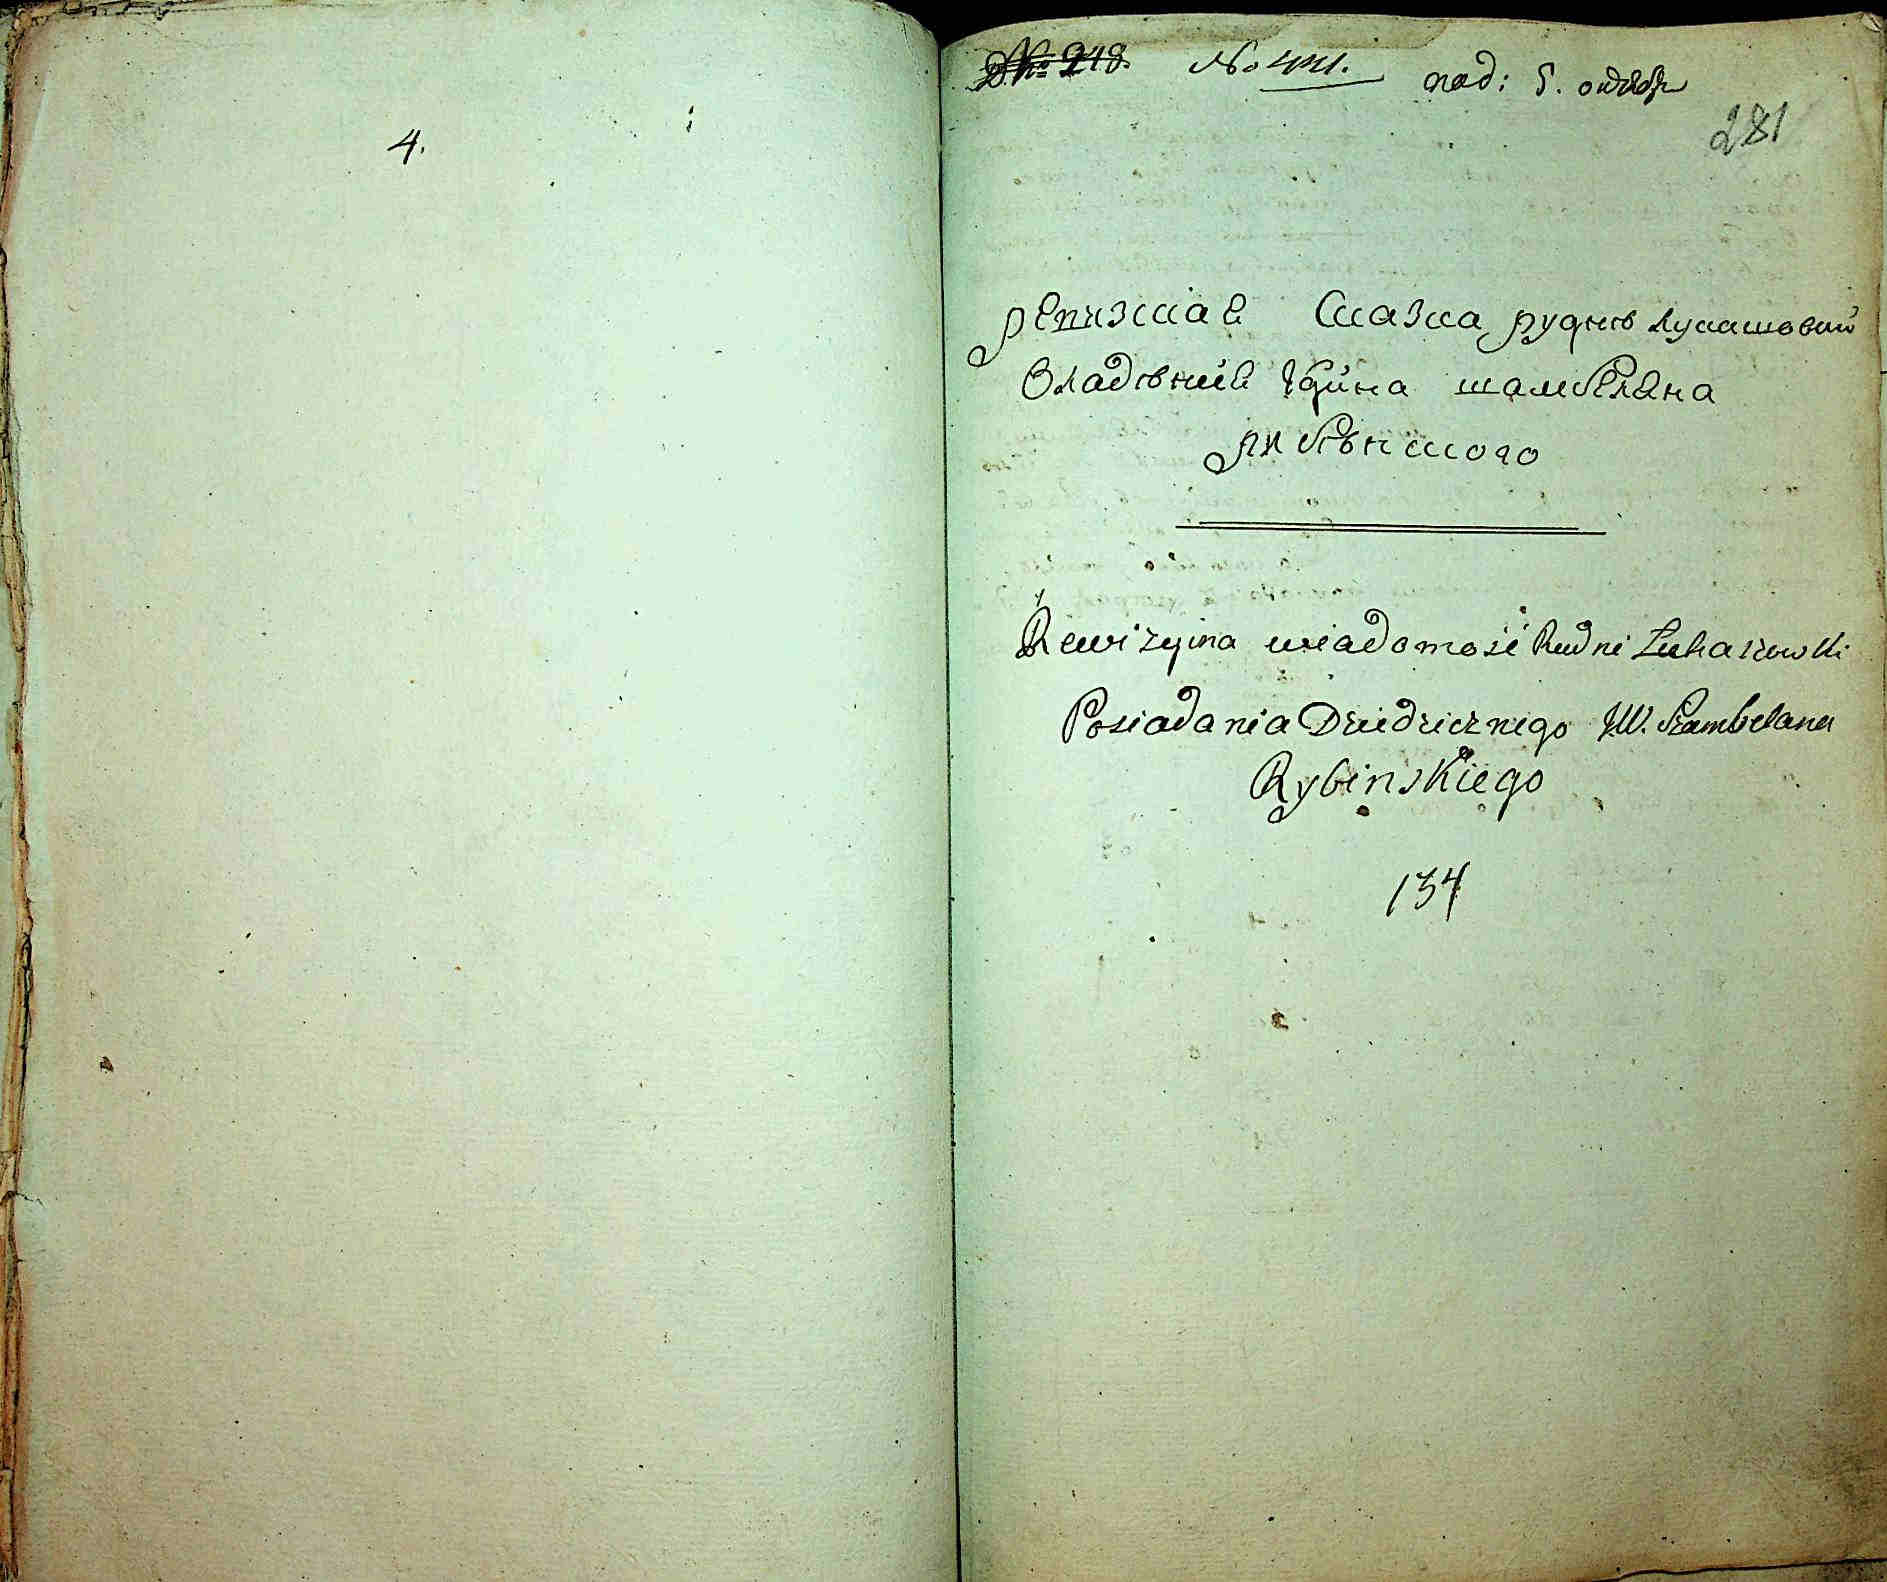 4.
№ 248. № 441. под: 5. октябр
281
ревизская Сказка рудни лукашовки
Владѣния Пана шамбеляна
рибѣнского
Rewizyina wiadomość Rudni Łukaszowki
Posiadania Dziedzicznego JW. Szambelana
Rybinskiego
134